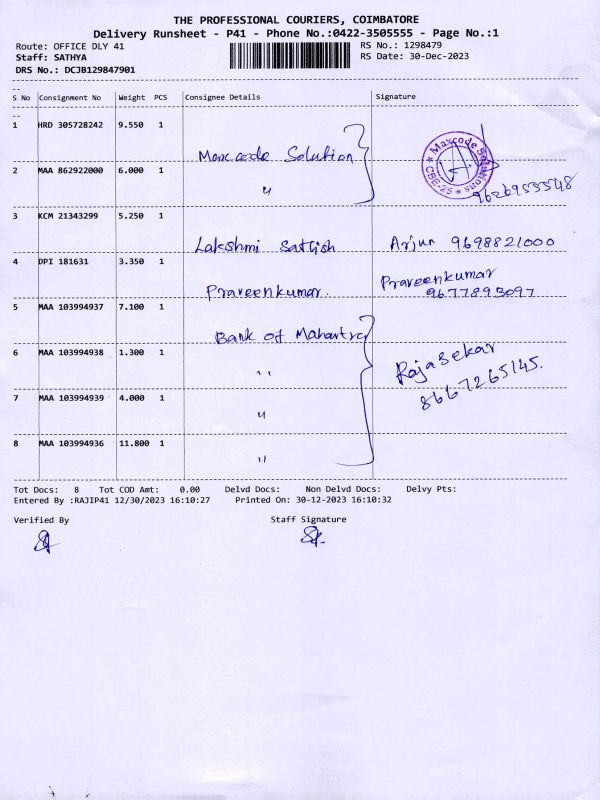 THE PROFESSIONAL COURIERS, COIMBATORE
Delivery Runsheet - P41 - Phone No.:0422-3505555 - Page No.:1
Route: OFFICE DLY 41 RS No.: 1298479
Staff: SATHYA RS Date: 30-Dec-2023
DRS No.: DCJB129847901
S No Consignment No Weight PCS Consignee Details Signature
1 HRD 305728242 9.550 1
Maxcode Solution
Maxcode Solutions * CBE-25 *
2 MAA 862922000 6.000 1
〃
3 KCM 21343299 5.250 1
Lakshmi Sattish Arjun 9698821000
4 DPI 181631 3.350 1
Praveenkumar. Praveenkumar
9677893097
5 MAA 103994937 7.100 1
Bank of Mahartra
6 MAA 103994938 1.300 1
〃 Rajasekar
8667265145.
7 MAA 103994939 4.000 1
〃
8 MAA 103994936 11.800 1
〃
Tot Docs: 8 Tot COD Amt: 0.00 Delvd Docs: Non Delvd Docs: Delvy Pts:
Entered By :RAJIP41 12/30/2023 16:10:27 Printed On: 30-12-2023 16:10:32
Verified By Staff Signature